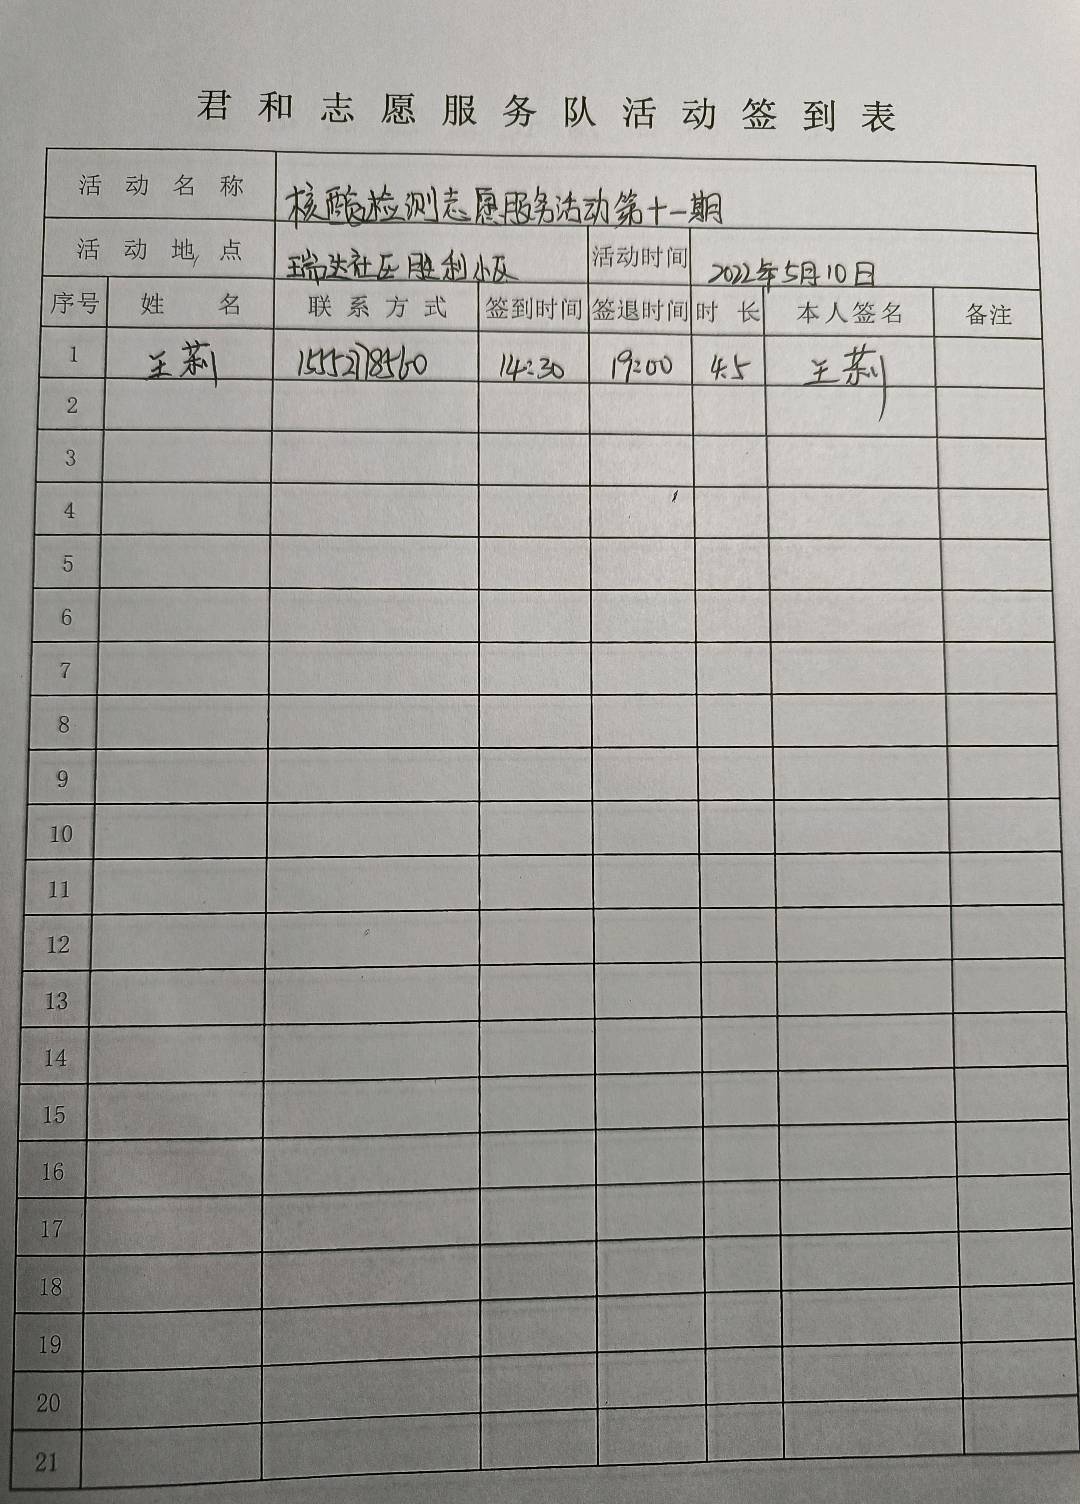 君和志愿服务队活动签到表
活动名称 核酸检测志愿服务活动第十一期
活动地点 瑞达社区胜利小区 活动时间 2022年5月10日
序号 姓名 联系方式 签到时间 签退时间 时长 本人签名 备注
1 王莉 1555278560 14:30 19:00 4.5 王莉
2
3
4
5
6
7
8
9
10
11
12
13
14
15
16
17
18
19
20
21